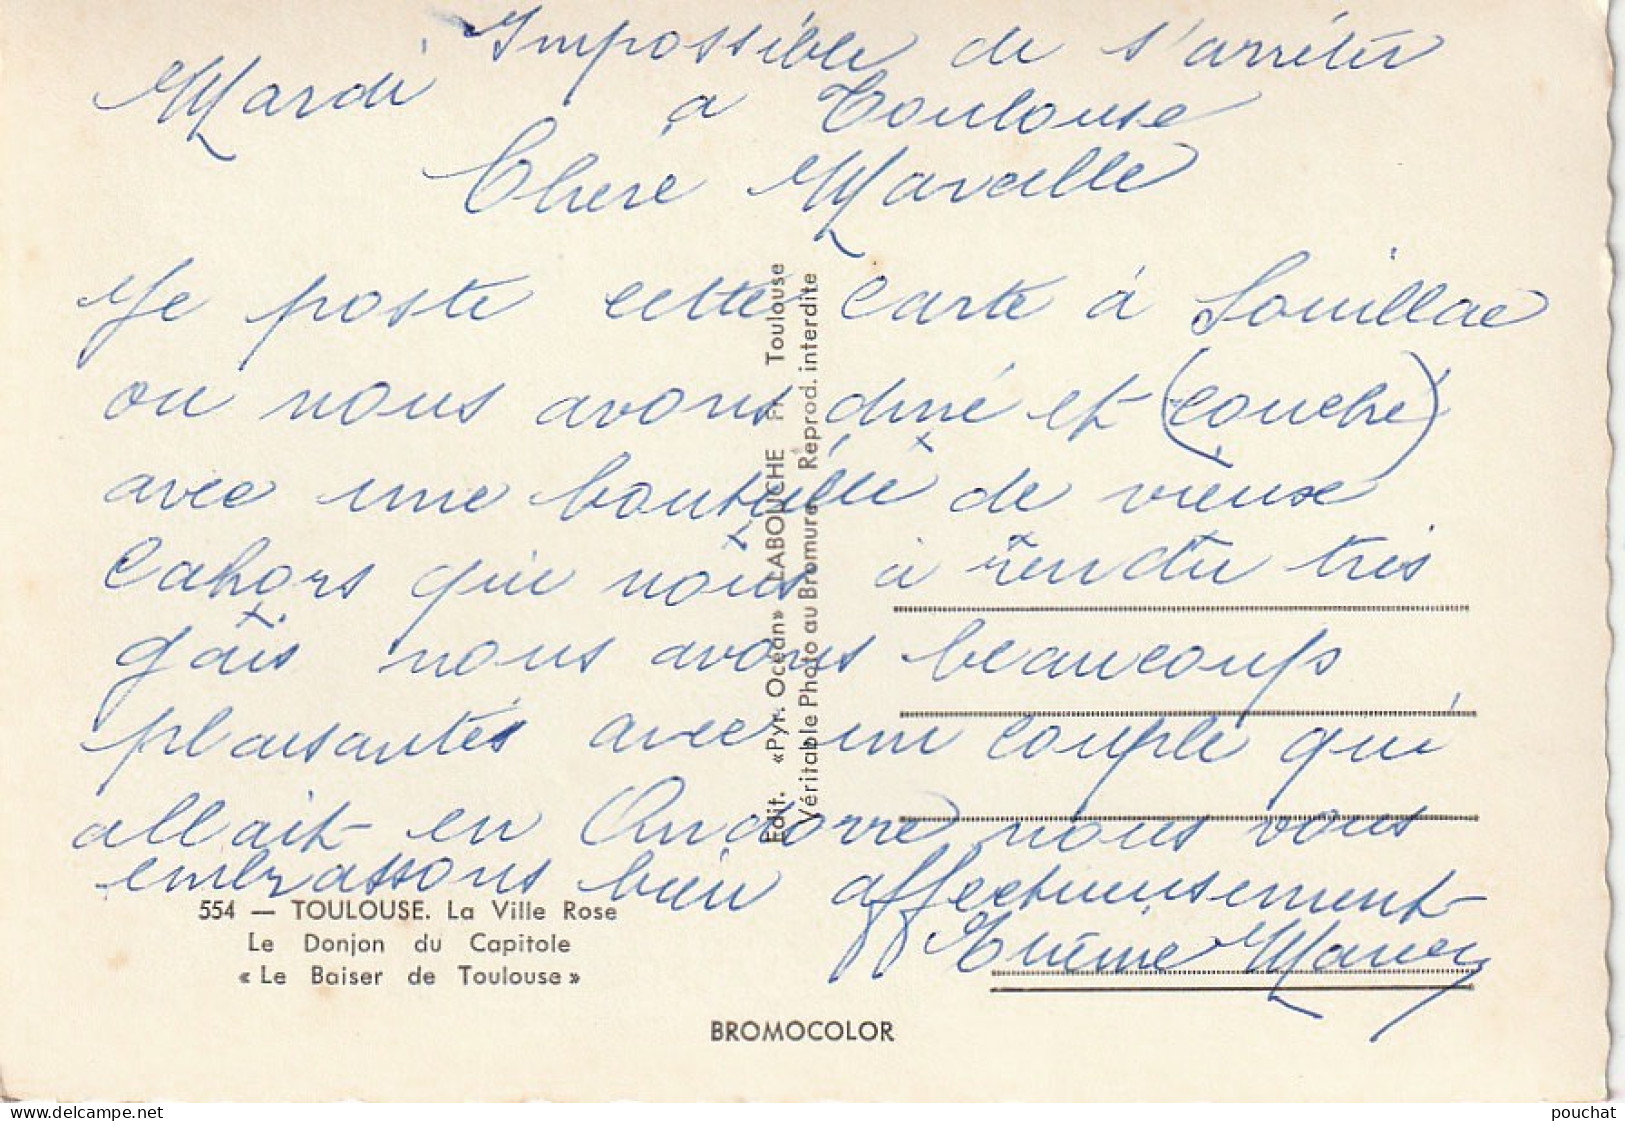 Impossible de s'arrêter
Mardi à Toulouse
Chère Marcelle
Je poste cette carte à Souillac
ou nous avons diné et (couché)
avec une bouteille de vieux
Cahors qui nous à rendu tres
gais nous avons beaucoup
plaisantés avec un couple qui
allait en Andorre nous vous
embrassons bien affectueusement
554 — TOULOUSE. La Ville Rose
Le Donjon du Capitole
« Le Baiser de Toulouse »
Edit. «Pyr. Océan» LABOUCHE Fr Toulouse
Véritable Photo au Bromure Reprod. interdite
BROMOCOLOR
delcampe.net
pouchat